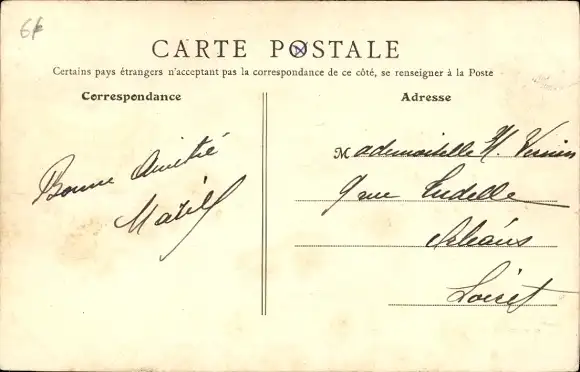 6f
CARTE POSTALE
Certains pays étrangers n'acceptant pas la correspondance de ce côté, se renseigner à la Poste
Correspondance
Adresse
Bonne Amitié
Mademoiselle H.
9 rue
Orléans
Loiret